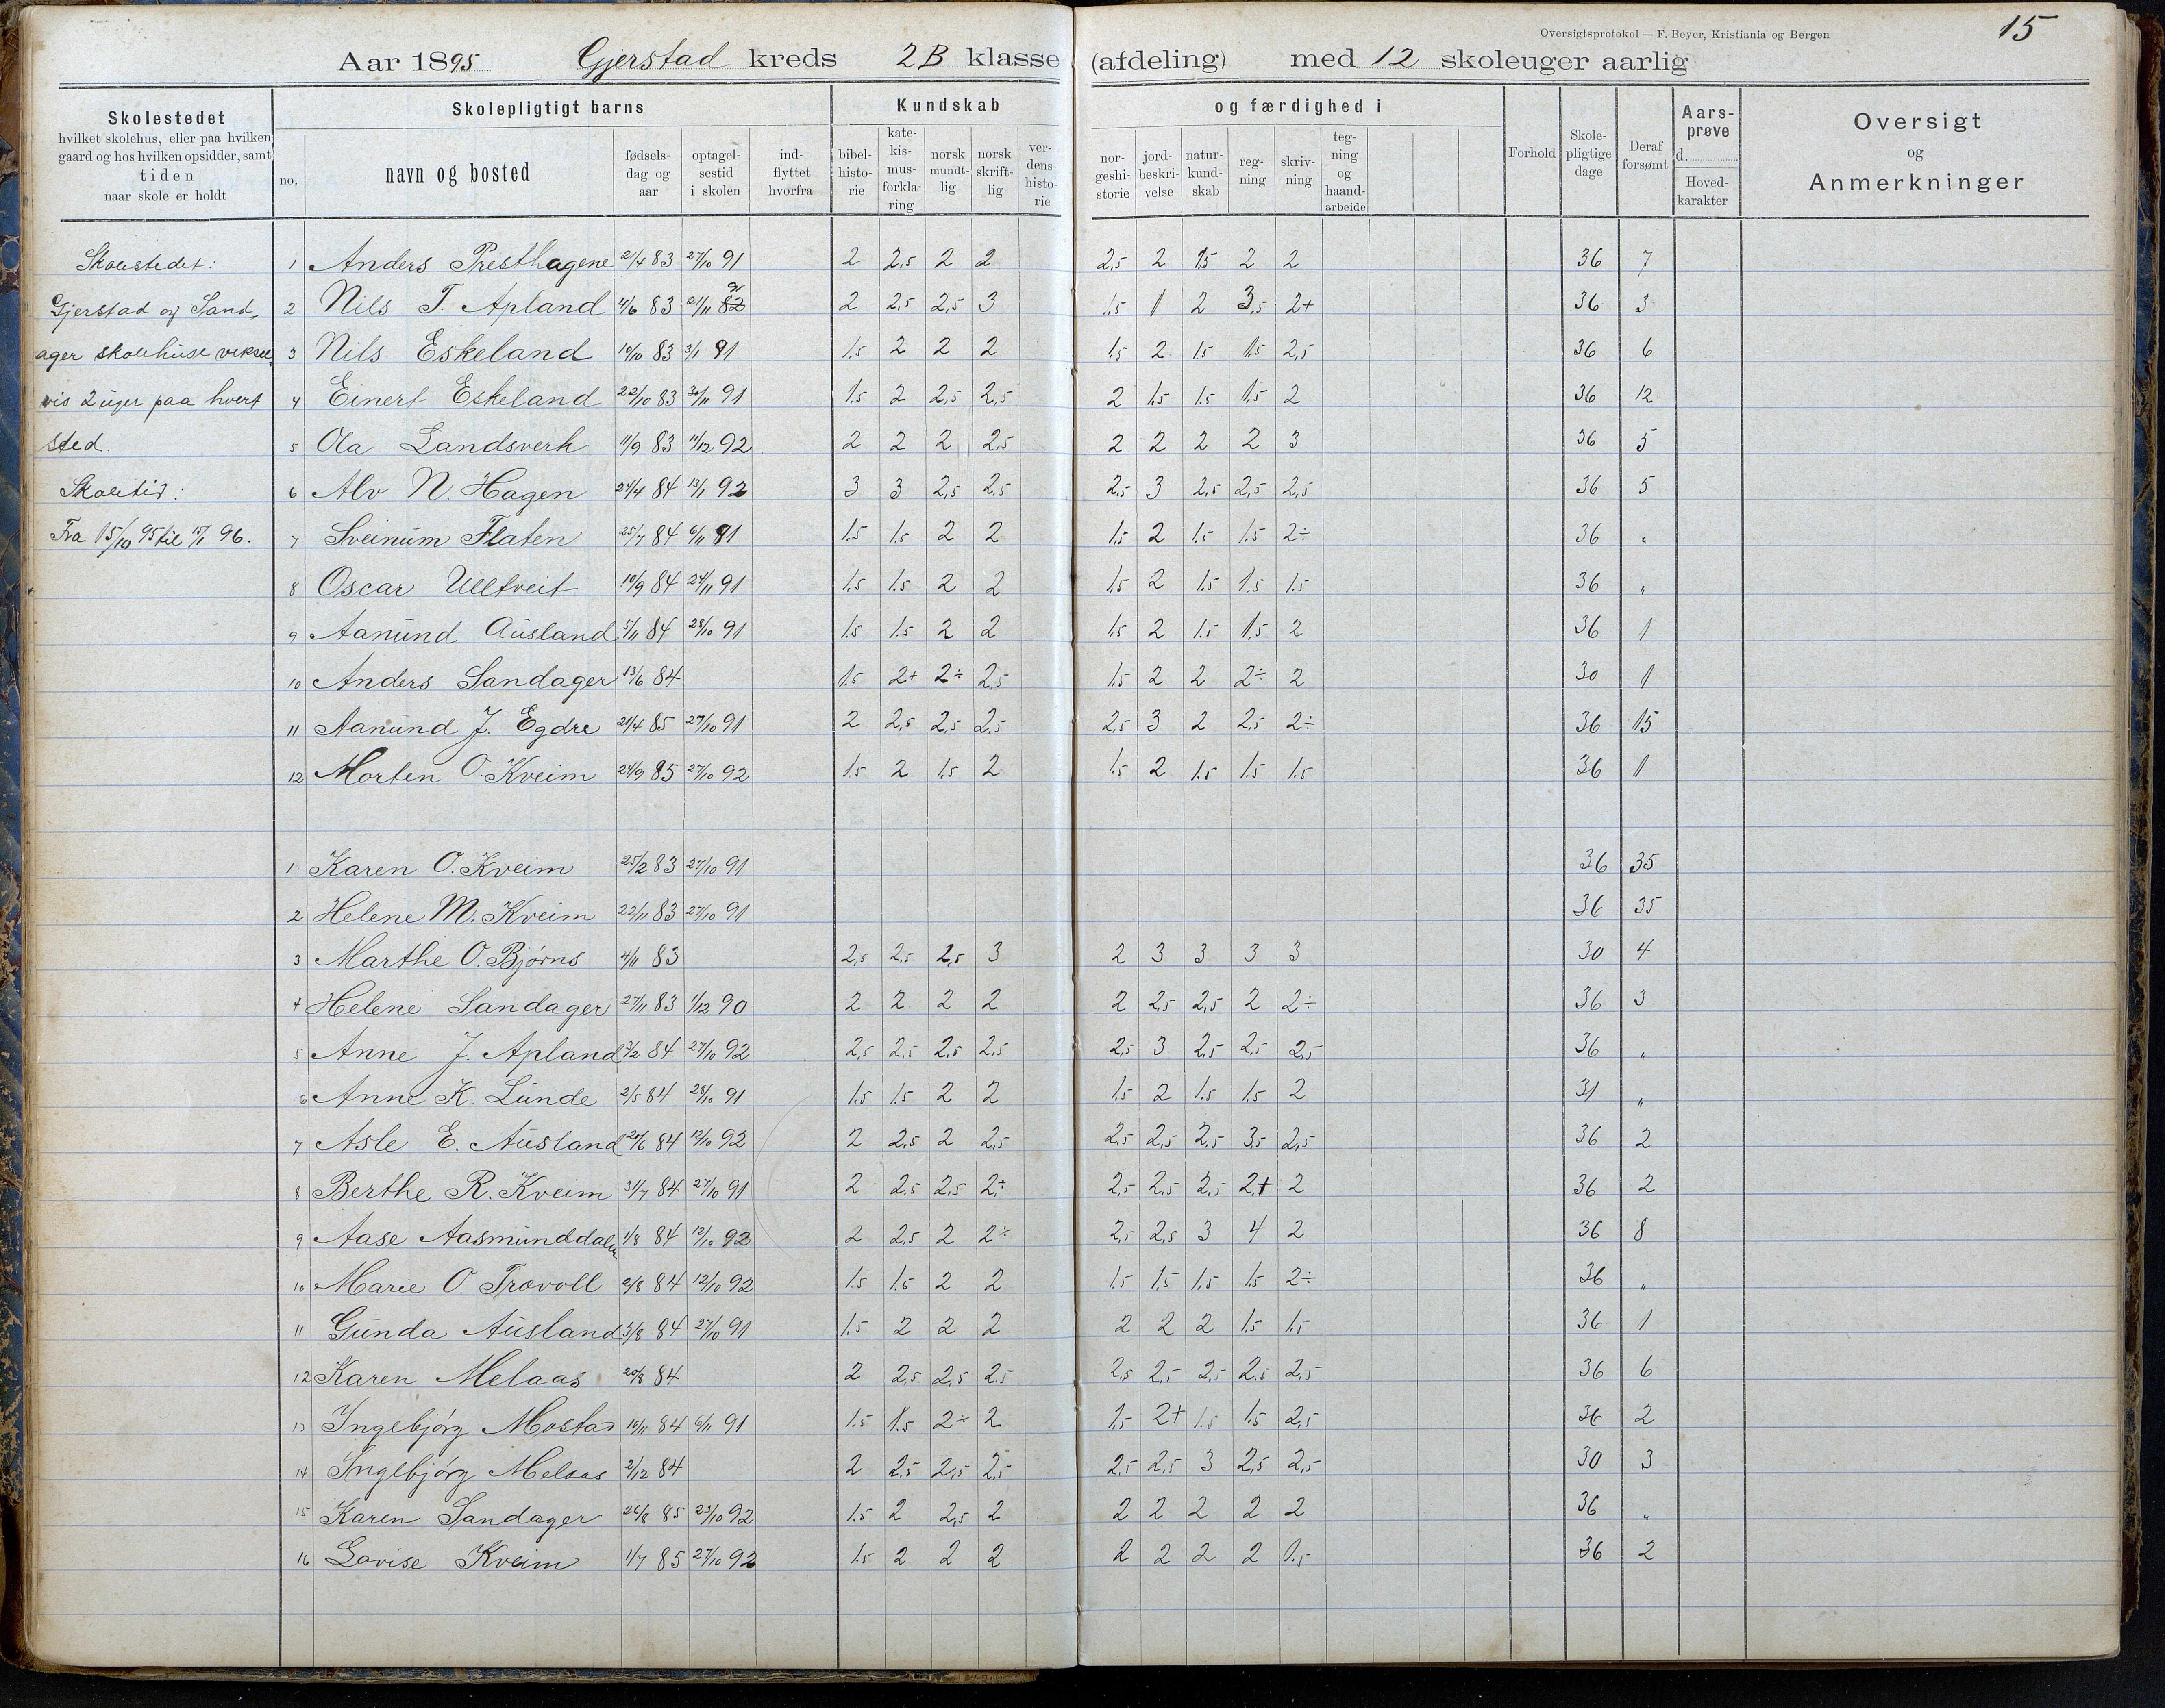 Oversigtsprotokol — F. Beyer, Kristiania og Bergen
15
Aar 1895 Gjerstad kreds 2B klasse (afdeling) med 12 skoleuger aarlig
Skolestedet
hvilket skolehus, eller paa hvilken
gaard og hos hvilken opsidder, samt
tiden
naar skole er holdt
Skolepligtigt barns
no. navn og bosted fødselsdag og aar optagelsestid i skolen indflyttet hvorfra
Kundskab og færdighed i
bibelhistorie katekismusforklaring norsk mundtlig norsk skriftlig verdenshistorie norgeshistorie jordbeskrivelse naturkundskab regning skrivning tegning og haandarbeide
Forhold Skolepligtige dage Deraf forsømt Aarsprøve d. Hovedkarakter
Oversigt
og
Anmerkninger
Skolestedet: 1 Anders Presthagene 2/4 83 27/10 91 2 2,5 2 2 2,5 2 1.5 2 2 36 7
Gjerstad og Sand- 2 Nils T. Apland 4/6 83 21/11 82 91 2 2,5 2,5 3 1.5 1 2 3,5 2+ 36 3
ager skolehuse veksel- 3 Nils Eskeland 10/10 83 3/1 91 1.5 2 2 2 1.5 2 1.5 1.5 2,5 36 6
vis 2 uger paa hvert 4 Einert Eskeland 22/10 83 30/11 91 1.5 2 2,5 2,5 2 1.5 1.5 1.5 2 36 12
sted. 5 Ola Landsverk 11/9 83 11/12 92 2 2 2 2,5 2 2 2 2 3 36 5
Skoletid: 6 Alv N. Hagen 24/4 84 13/1 92 3 3 2,5 2,5 2,5 3 2,5 2,5 2,5 36 5
Fra 15/10 95 til 15/1 96. 7 Sveinum Flaten 25/7 84 6/11 91 1.5 1.5 2 2 1.5 2 1.5 1.5 2÷ 36 "
8 Oscar Ulltveit 10/9 84 24/11 91 1.5 1.5 2 2 1.5 2 1.5 1.5 1.5 36 "
9 Aanund Ausland 5/11 84 28/10 91 1.5 1.5 2 2 1.5 2 1.5 1.5 2 36 1
10 Anders Sandager 13/6 84 1.5 2+ 2÷ 2,5 1.5 2 2 2÷ 2 30 1
11 Aanund J. Egdre 21/4 85 27/10 91 2 2,5 2,5 2,5 2,5 3 2 2,5 2÷ 36 15
12 Morten O. Kveim 24/9 85 27/10 92 1.5 2 1.5 2 1.5 2 1.5 1.5 1.5 36 1
1 Karen O. Kveim 25/2 83 27/10 91 36 35
2 Helene M. Kveim 22/11 83 27/10 91 36 35
3 Marthe O. Bjørns 4/11 83 2,5 2,5 2,5 3 2 3 3 3 3 30 4
4 Helene Sandager 27/11 83 1/12 90 2 2 2 2 2 2,5 2,5 2 2÷ 36 3
5 Anne J. Apland 3/2 84 27/10 92 2,5 2,5 2,5 2,5 2,5 3 2,5 2,5 2,5 36 "
6 Anne K. Lunde 2/5 84 28/10 91 1.5 1.5 2 2 1.5 2 1.5 1.5 2 31 "
7 Asle E. Ausland 20/6 84 12/10 92 2 2,5 2 2,5 2,5 2,5 2,5 3,5 2,5 36 2
8 Berthe R. Kveim 31/7 84 27/10 91 2 2,5 2,5 2÷ 2,5 2,5 2,5 2+ 2 36 2
9 Aase Aasmunddalen 1/8 84 12/10 92 2 2,5 2 2÷ 2,5 2,5 3 4 2 36 8
10 Marie O. Trovoll 2/8 84 12/10 92 1.5 1.5 2 2 1.5 1.5 1.5 1.5 2÷ 36 "
11 Gunda Ausland 3/8 84 27/10 91 1.5 2 2 2 2 2 2 1.5 1.5 36 1
12 Karen Melaas 20/8 84 2 2,5 2,5 2,5 2,5 2,5 2,5 2,5 2,5 36 6
13 Ingebjørg Mostad 10/11 84 6/11 91 1.5 1.5 2÷ 2 1.5 2+ 1.5 1.5 2,5 36 2
14 Ingebjørg Melaas 2/12 84 2 2,5 2,5 2,5 2,5 2,5 3 2,5 2,5 30 3
15 Karen Sandager 26/8 85 23/10 92 1.5 2 2,5 2 2 2 2 2 2 36 "
16 Lovise Kveim 1/7 85 27/10 92 1.5 2 2 2 2 2 2 2 1.5 36 2